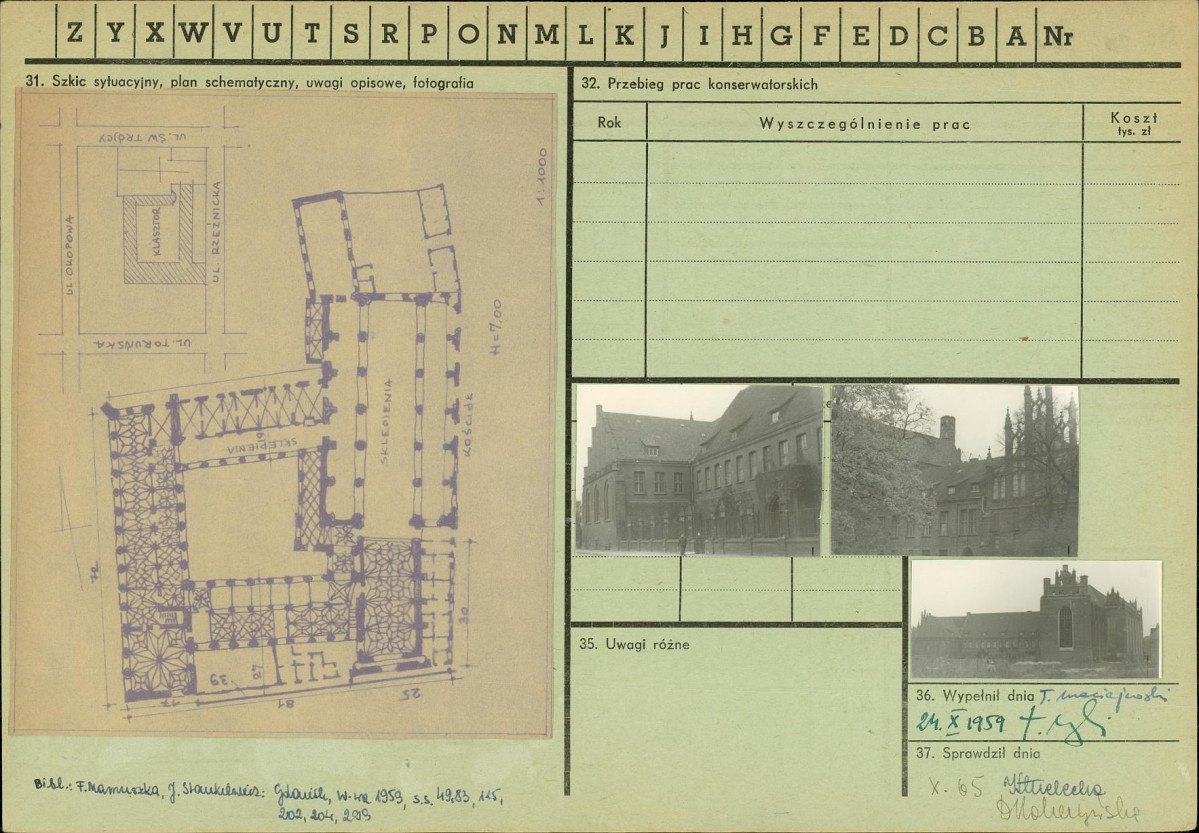 Z Y X W V U T S R P O N M L K J I H G F E D C B A Nr
31. Szkic sytuacyjny, plan schematyczny, uwagi opisowe, fotografia
UL. ŚW. TRÓJCY
UL. OKOPOWA
KLASZTOR
UL. RZEŹNICKA
UL. TORUŃSKA
1:1000
H=7,00
SKLEPIENIA
KOŚCIÓŁ
SKLEPIENIA
19
72
30
39
27
17
81
25
Bibl.: F. Mamuszka, J. Stankiewicz: Gdańsk, W-wa 1959, s.s. 49,83, 115,
202, 204, 209
32. Przebieg prac konserwatorskich
Rok
Wyszczególnienie prac
Koszt
tys. zł
35. Uwagi różne
36. Wypełnił dnia T. Maciejewski
24. X 1959
37. Sprawdził dnia
X. 65